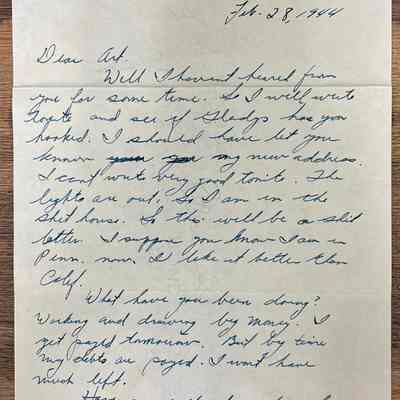 Feb. 28, 1944
Dear Art.
Well I havent heared from
you for some time. So I will write
tonite and see if Gladys has you
hooked. I should have let you
know my new address.
I cant write very good tonite. The
lights are out, So I am in the
shit house. So this will be a shit
letter. I suppose you know I am in
Penn. now. I like it better than
Calif.
What have you been doing?
Working and drawing big money. I
get payed tomorrow. But by time
my debts are payed. I wont have
much left.